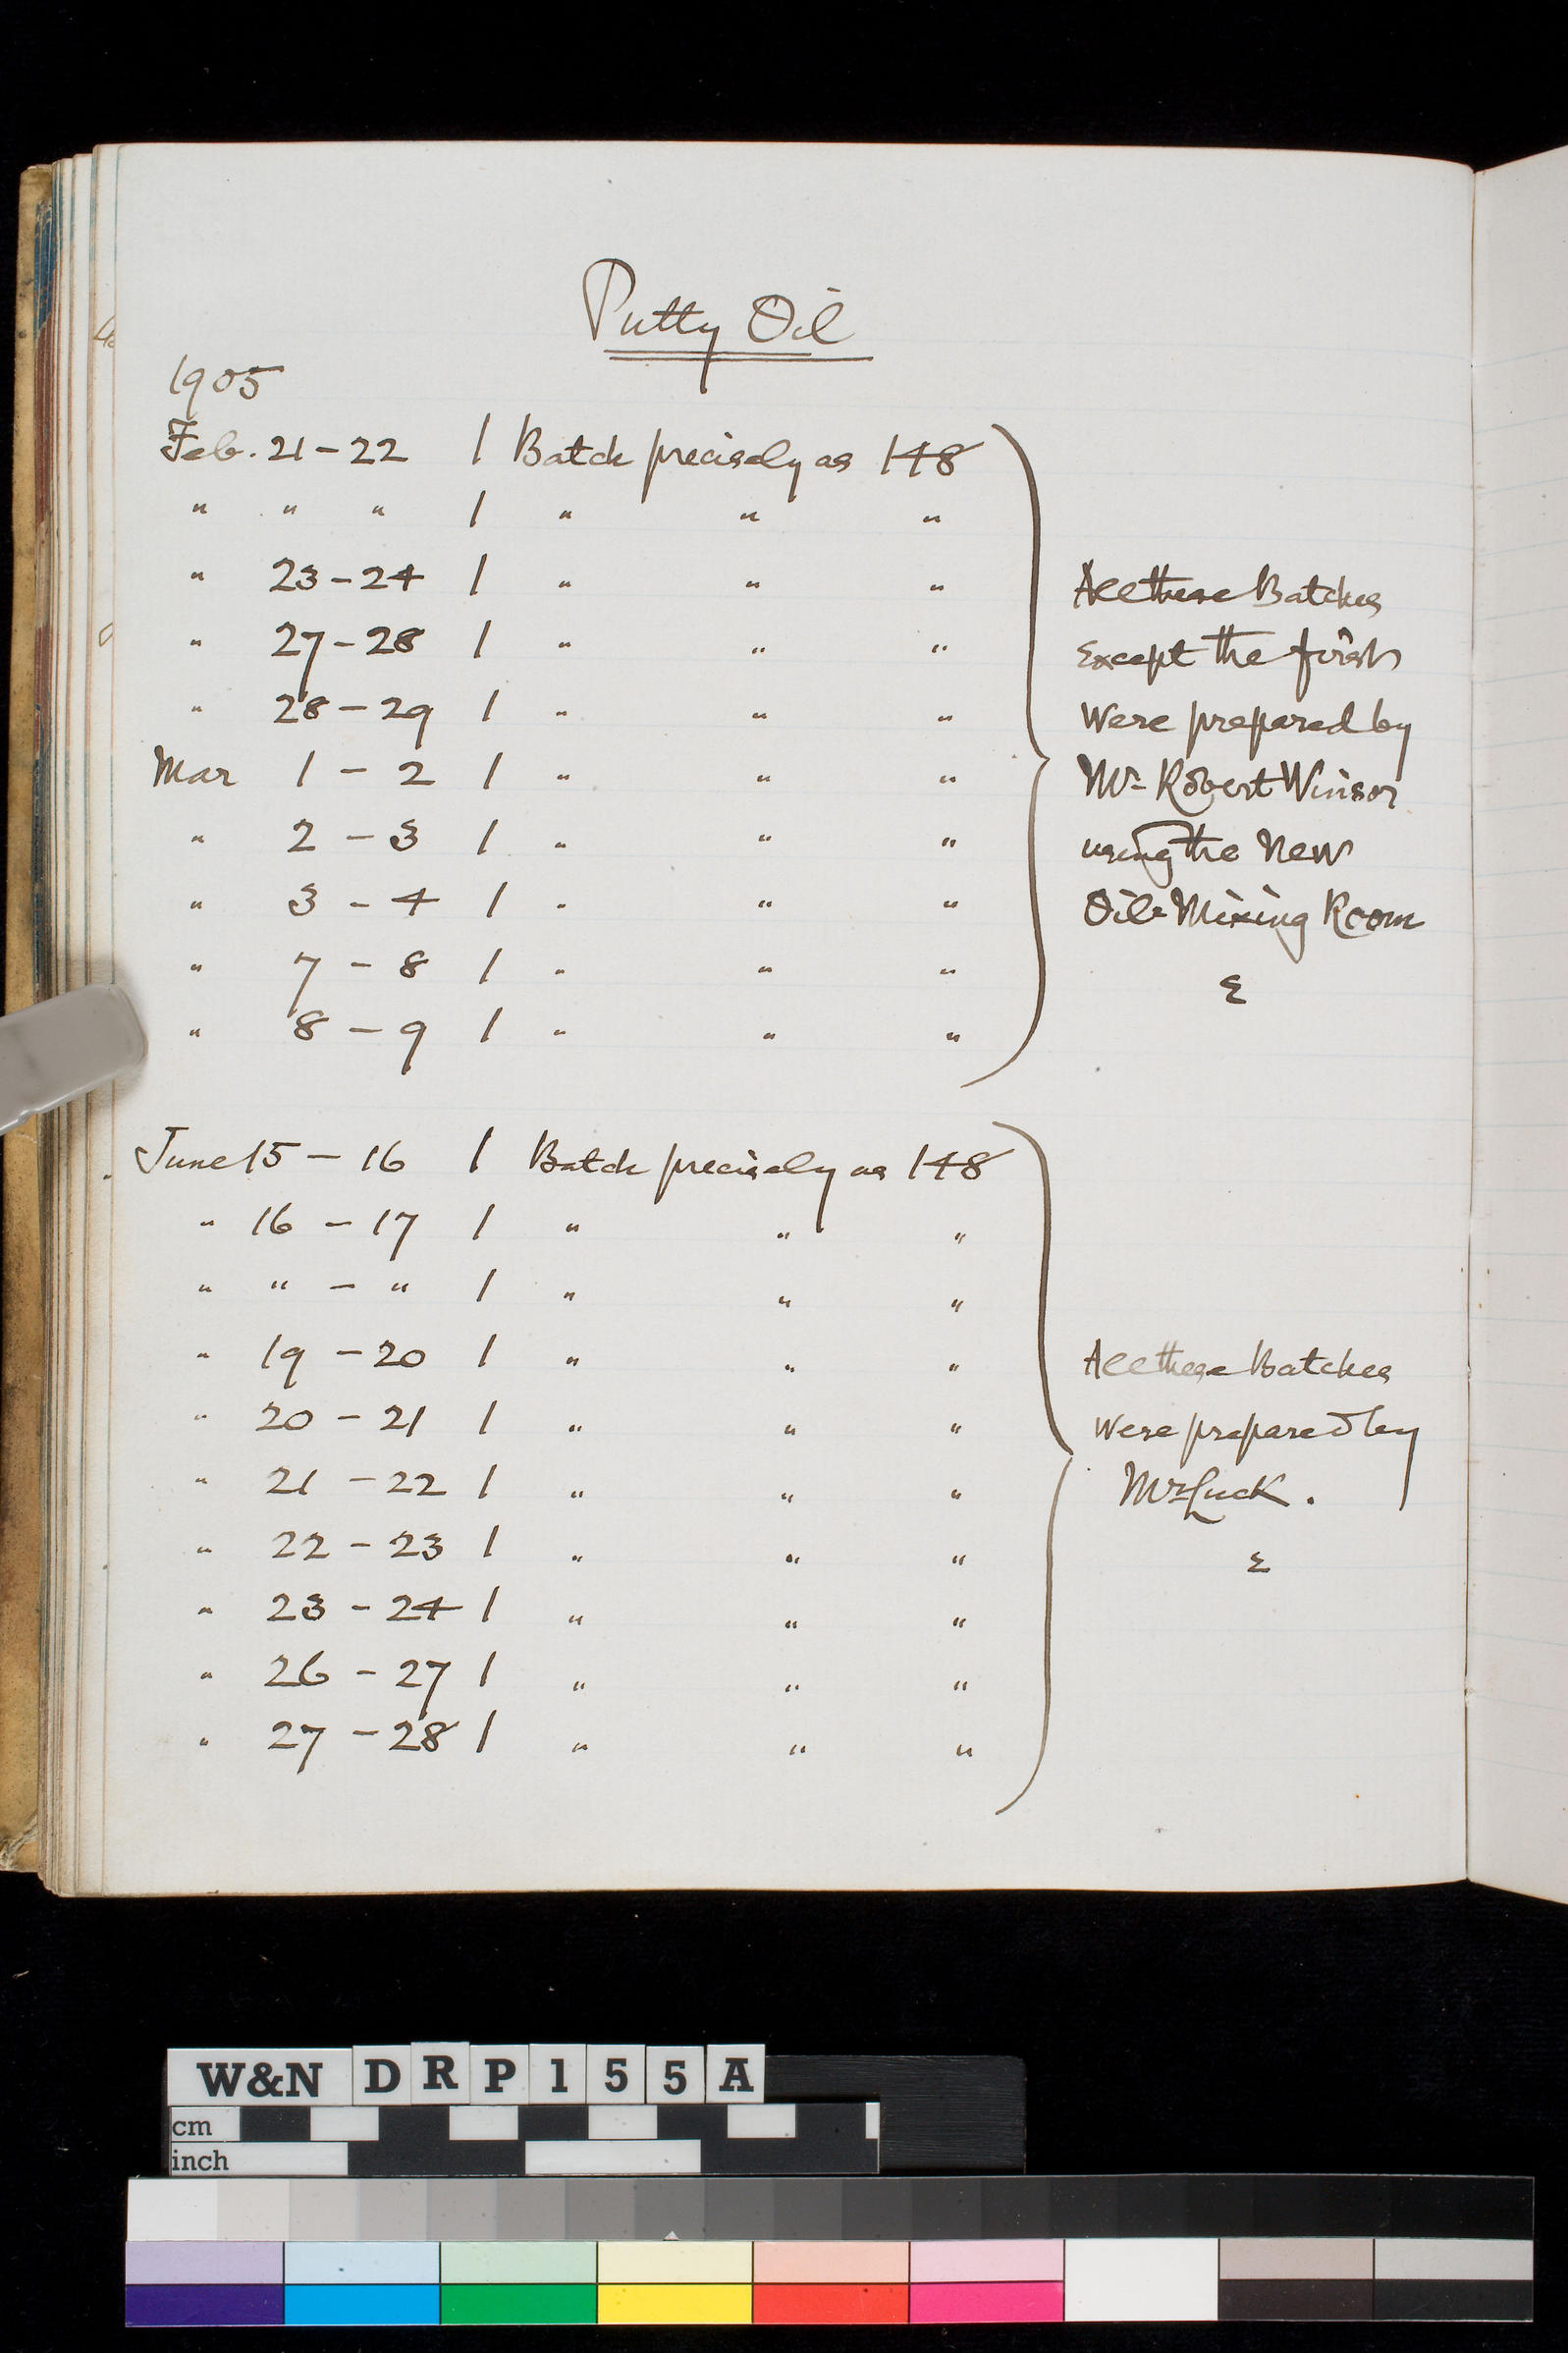 Putty Oil
1905
Feb. 21 - 22 1 Batch precisely as 148
" " " 1 " " "
" 23 - 24 1 " " "
" 27 - 28 1 " " "
" 28 - 29 1 " " "
Mar 1 - 2 1 " " "
" 2 - 3 1 " " "
" 3 - 4 1 " " "
" 7 - 8 1 " " "
" 8 - 9 1 " " "
All these Batches
Except the first
Were prepared by
Mr Robert Winsor
using the New
Oil Mixing Room
Σ
June 15 - 16 1 Batch precisely as 148
" 16 - 17 1 " " "
" " - " 1 " " "
" 19 - 20 1 " " "
" 20 - 21 1 " " "
" 21 - 22 1 " " "
" 22 - 23 1 " " "
" 23 - 24 1 " " "
" 26 - 27 1 " " "
" 27 - 28 1 " " "
All these Batches
were prepared by
Mr Luck.
Σ
W&N DRP155A
cm
inch